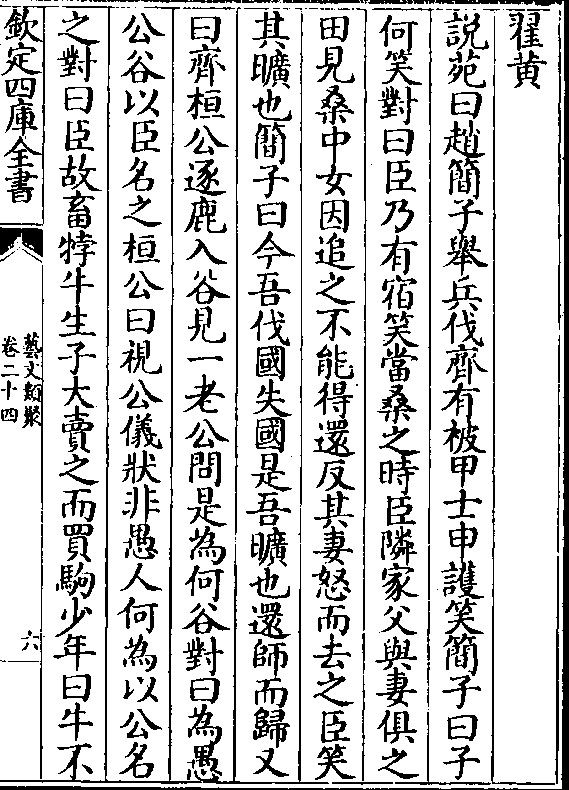 翟黄
説苑曰趙簡子舉兵伐齊有被甲士申護笑簡子曰子
何笑對曰臣乃有宿笑當桑之時臣隣家父與妻俱之
田見桑中女因追之不能得還反其妻怒而去之臣笑
其曠也簡子曰今吾伐國失國是吾曠也還師而歸又
曰齊桓公逐鹿入谷見一老公問是為何谷對曰為愚
公谷以臣名之桓公曰視公儀狀非愚人何為以公名
之對曰臣故畜牸牛生子大賣之而買駒少年曰牛不
欽定四庫全書
藝文類聚
卷二十四
六